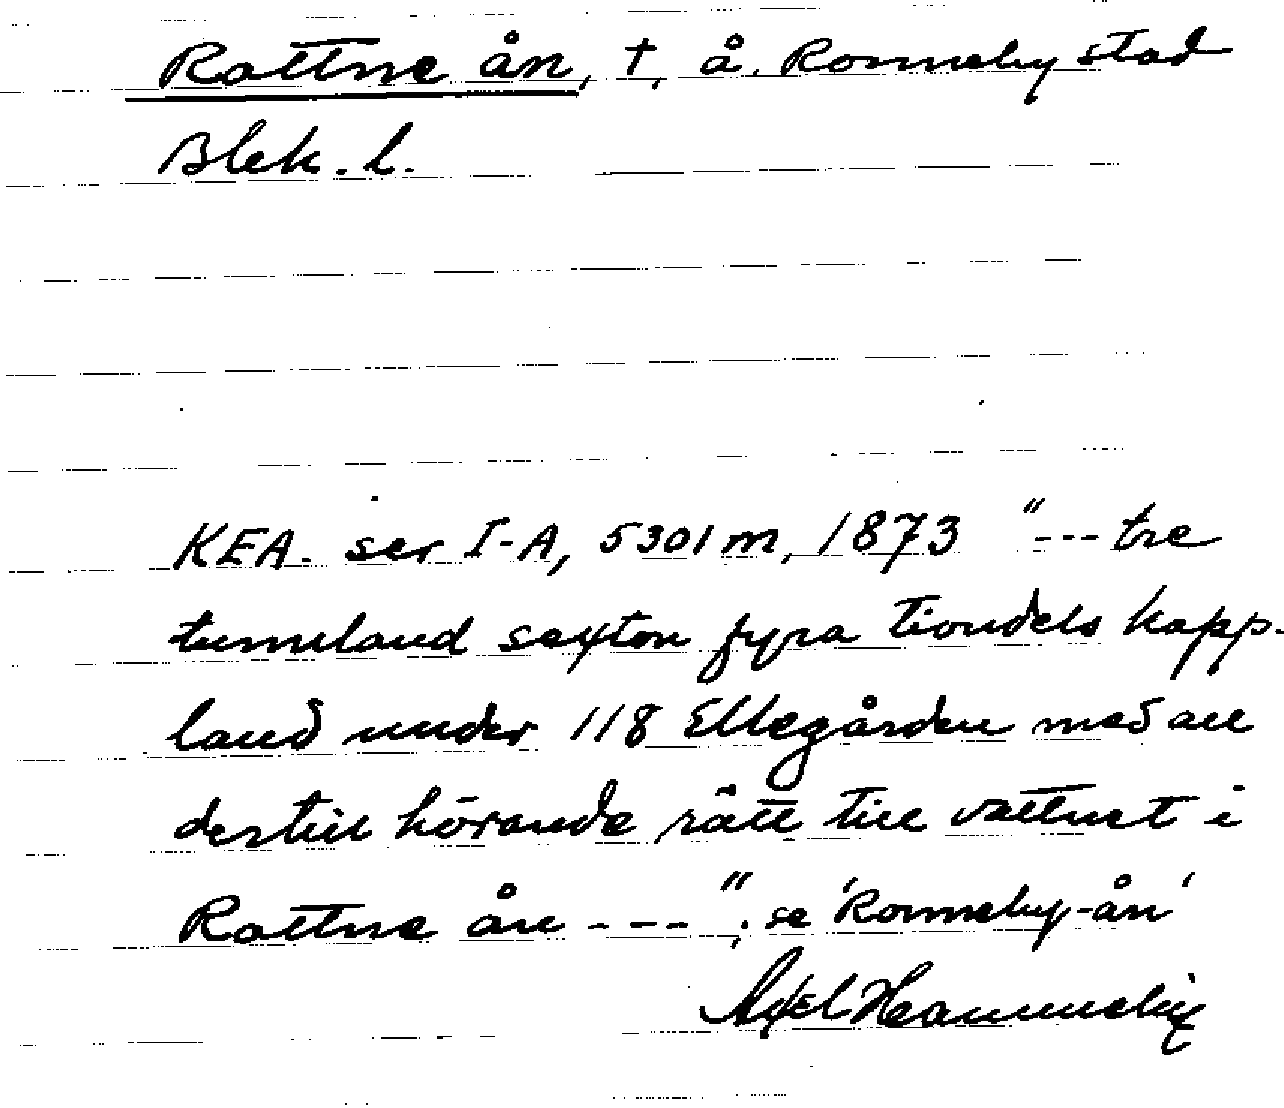 Rottne ån, †, å. Ronneby stad
Blek. l.
KEA. ser I-A, 5301 m, 1873 "---tre
tunnland sexton fyra tiondels kapp.
land under 118 Ellegården med all
dertill hörande rätt till vattnet i
Rottne ån ---", se 'Ronneby-ån'
Axel